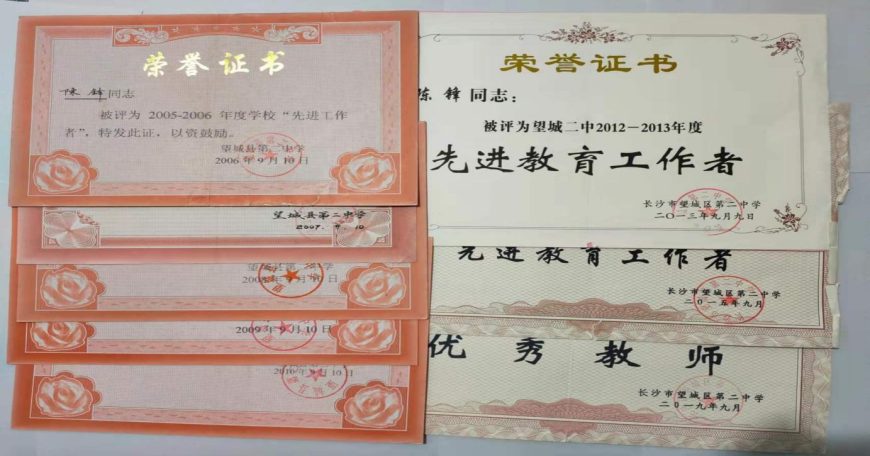 荣誉证书
陈锋同志
被评为 2005-2006 年度学校“先进工作
者”,特发此证,以资鼓励。
望城县第二中学
2006年9月10日
望城县第二中学
2007. 9. 10
望城县第二中学
2008年9月10日
2009年9月10日
2010年9月10日
荣誉证书
陈锋同志:
被评为望城二中2012-2013年度
先进教育工作者
长沙市望城区第二中学
二〇一三年九月九日
先进教育工作者
长沙市望城区第二中学
二〇一五年九月
优秀教师
长沙市望城区第二中学
二〇一九年九月